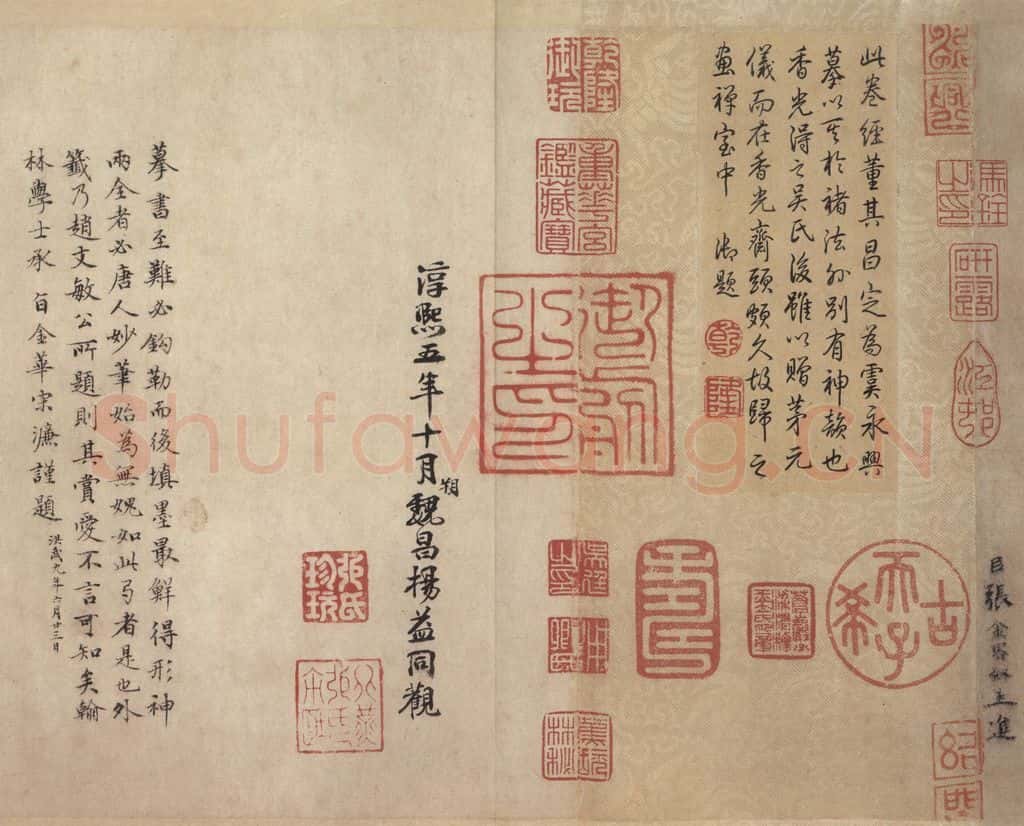 臣張金界奴上進
此卷經董其昌定為虞永興
摹以其於褚法外別有神韻也
香光得之吳氏後雖以贈茅元
儀而在香光齋頭頗久故歸之
畫禪室中 御題
乾
隆
研露
古希天子
乾隆御玩
重華宮鑑藏寶
淳熙五年十月朔魏昌楊益同觀
張氏珍玩
摹書至難必鉤勒而後填墨最鮮得形神
兩全者必唐人妙筆始為無媿如此卷者是也外
籤乃趙文敏公所題則其賞愛不言可知矣翰
林學士承旨金華宋濂謹題 洪武九年六月廿三日
Shufawang.CN